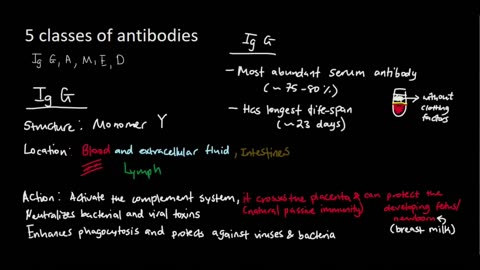 5 classes of antibodies
Ig G, A, M, E, D
Ig G
Structure: Monomer Y
Location: Blood and extracellular fluid, Intestines
Lymph
Action: Activate the complement system, it crosses the placenta & can protect the
Neutralizes bacterial and viral toxins (natural passive immunity) developing fetus/
newborn
Enhances phagocytosis and protects against viruses & bacteria (breast milk)
Ig G
- Most abundant serum antibody
(~ 75-80 %)
- Has longest life-span
(~ 23 days)
without
clotting
factors